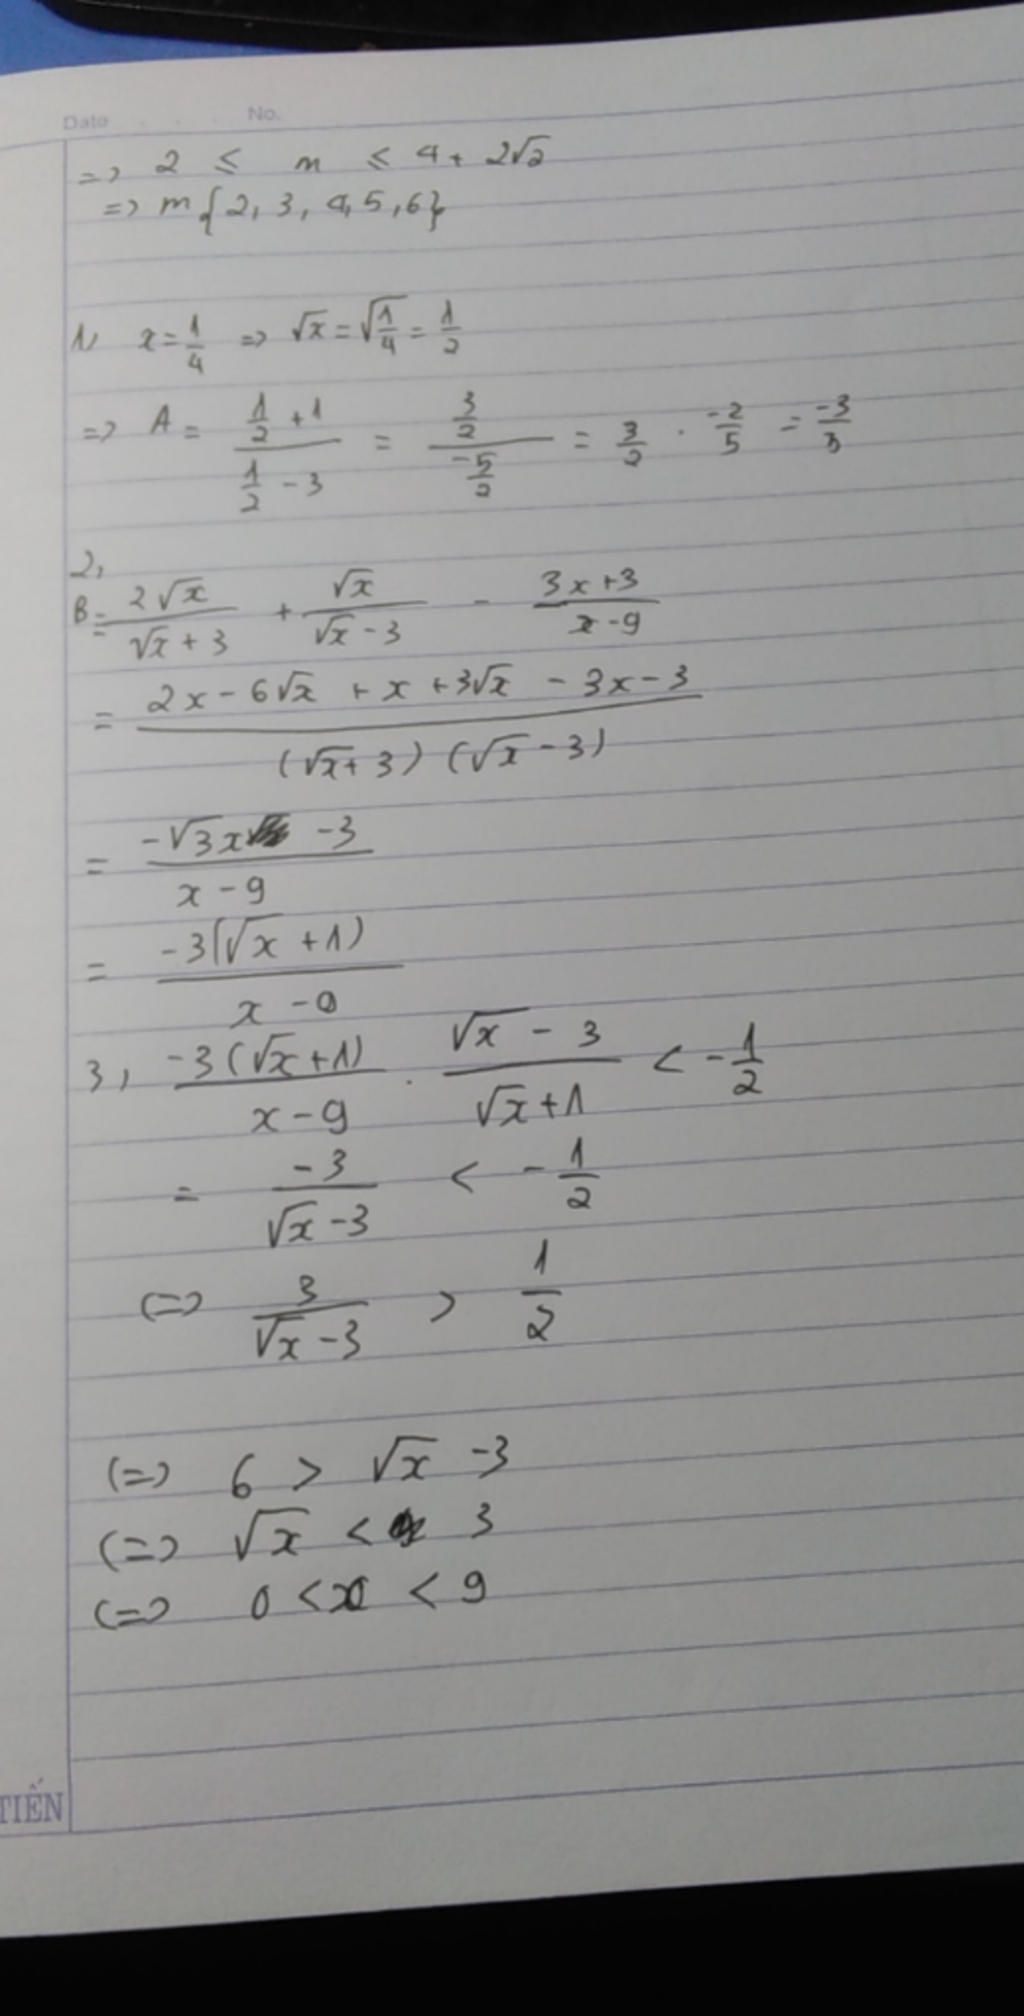 Date . . . No.
=> 2 ≤ m ≤ 4 + 2√2
=> m {2, 3, 4, 5, 6}
1, x = 1/4 => √x = √(1/4) = 1/2
=> A = (1/2 + 1)/(1/2 - 3) = (3/2)/(-5/2) = 3/2 . -2/5 = -3/5
2,
B = 2√x/(√x + 3) + √x/(√x - 3) - (3x + 3)/(x - 9)
= (2x - 6√x + x + 3√x - 3x - 3)/((√x + 3)(√x - 3))
= (-√3x - 3)/(x - 9)
= -3(√x + 1)/(x - 9)
3, -3(√x + 1)/(x - 9) . (√x - 3)/(√x + 1) < -1/2
= -3/(√x - 3) < -1/2
(=> 3/(√x - 3) > 1/2
(=> 6 > √x - 3
(=> √x < 3
(=> 0 < x < 9
TIẾN